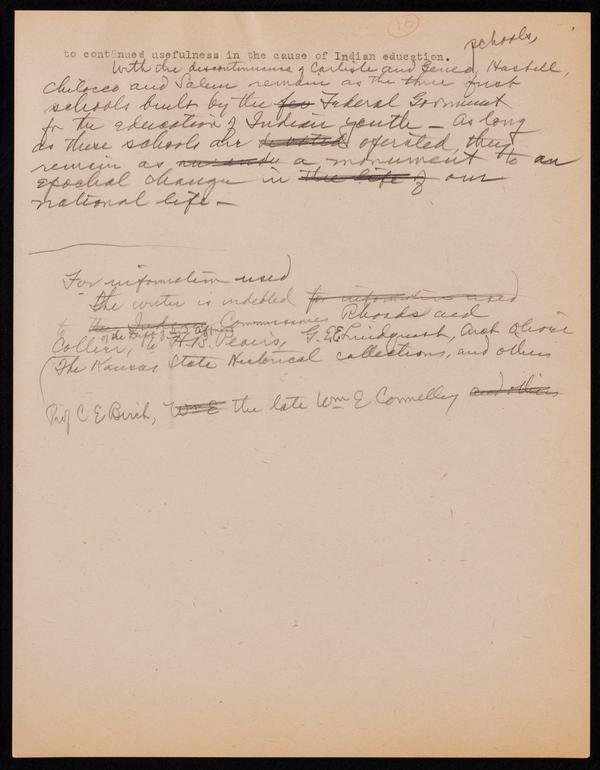 15
to continued usefulness in the cause of Indian education.
schools,
With the discontinuance of Carlisle and Genoa Haskell,
Chilocco and Salem remain as the three first
schools built by the few Federal Government
for the education of Indian youth – As long
as these schools are devoted operated, they
remain as a monument to an
epochal change in the life of our
national life –
For information used
The writer is indebted for information used
to the Indian Commissioners Rhoads and
of the Dept of
Collier, to H.B. Peairs, G.E.E. Lindquist,
(The Kansas State Historical collections, and others
Prof C E Birch, Wm E the late Wm E Connelley and others